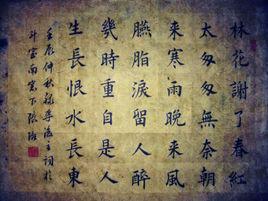 林花謝了春紅
太匆匆無奈朝
來寒雨晚來風
臙脂淚留人醉
幾時重自是人
生長恨水長東
壬辰仲秋錄李後主詞於
斗室南窗下張